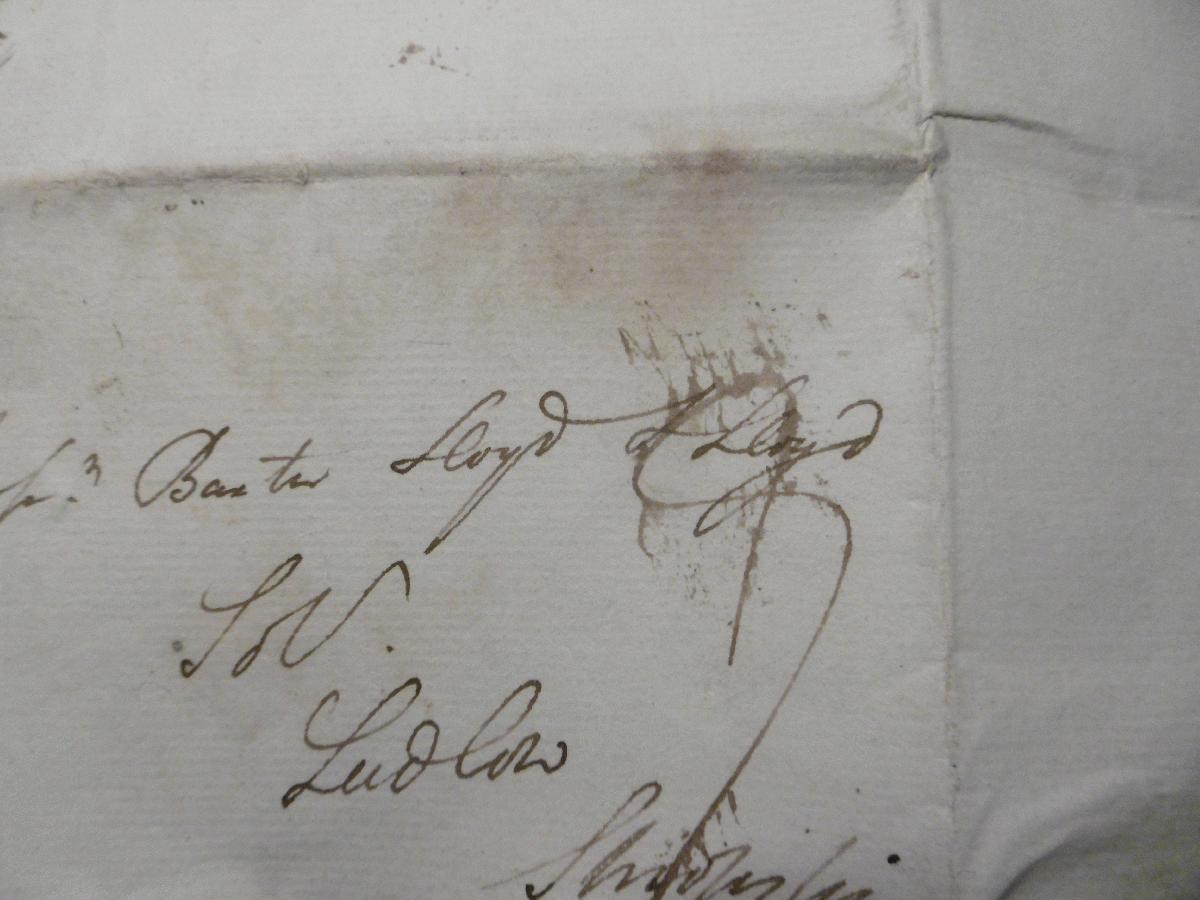 Baxter Lloyd & Lloyd
Sol^rs.
Ludlow
Shropshire